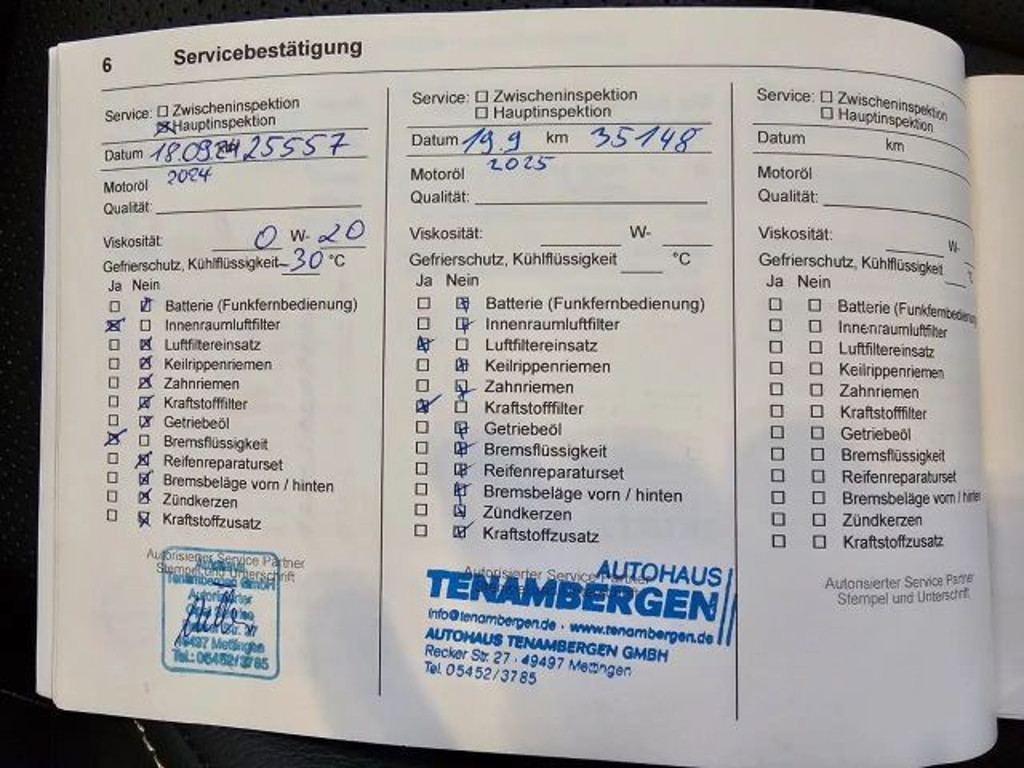 6 Servicebestätigung
Service: Zwischeninspektion
Hauptinspektion
Datum 18.09. 25557
2024
Motoröl
Qualität:
Viskosität: 0 W- 20
Gefrierschutz, Kühlflüssigkeit -30 °C
Ja Nein
Batterie (Funkfernbedienung)
Innenraumluftfilter
Luftfiltereinsatz
Keilrippenriemen
Zahnriemen
Kraftstofffilter
Getriebeöl
Bremsflüssigkeit
Reifenreparaturset
Bremsbeläge vorn / hinten
Zündkerzen
Kraftstoffzusatz
Autorisierter Service Partner
Stempel und Unterschrift
Tenambergen GmbH
Autorisierter
49497 Mettingen
Tel.: 05452/3785
Service: Zwischeninspektion
Hauptinspektion
Datum 19.9 km 35148
2025
Motoröl
Qualität:
Viskosität: W-
Gefrierschutz, Kühlflüssigkeit °C
Ja Nein
Batterie (Funkfernbedienung)
Innenraumluftfilter
Luftfiltereinsatz
Keilrippenriemen
Zahnriemen
Kraftstofffilter
Getriebeöl
Bremsflüssigkeit
Reifenreparaturset
Bremsbeläge vorn / hinten
Zündkerzen
Kraftstoffzusatz
Autorisierter Service Partner
AUTOHAUS
TENAMBERGEN
info@tenambergen.de · www.tenambergen.de
AUTOHAUS TENAMBERGEN GMBH
Recker Str. 27 · 49497 Mettingen
Tel. 05452/3785
Service: Zwischeninspektion
Hauptinspektion
Datum km
Motoröl
Qualität:
Viskosität: W-
Gefrierschutz, Kühlflüssigkeit
Ja Nein
Batterie (Funkfernbedienung
Innenraumluftfilter
Luftfiltereinsatz
Keilrippenriemen
Zahnriemen
Kraftstofffilter
Getriebeöl
Bremsflüssigkeit
Reifenreparaturset
Bremsbeläge vorn / hinten
Zündkerzen
Kraftstoffzusatz
Autorisierter Service Partner
Stempel und Unterschrift